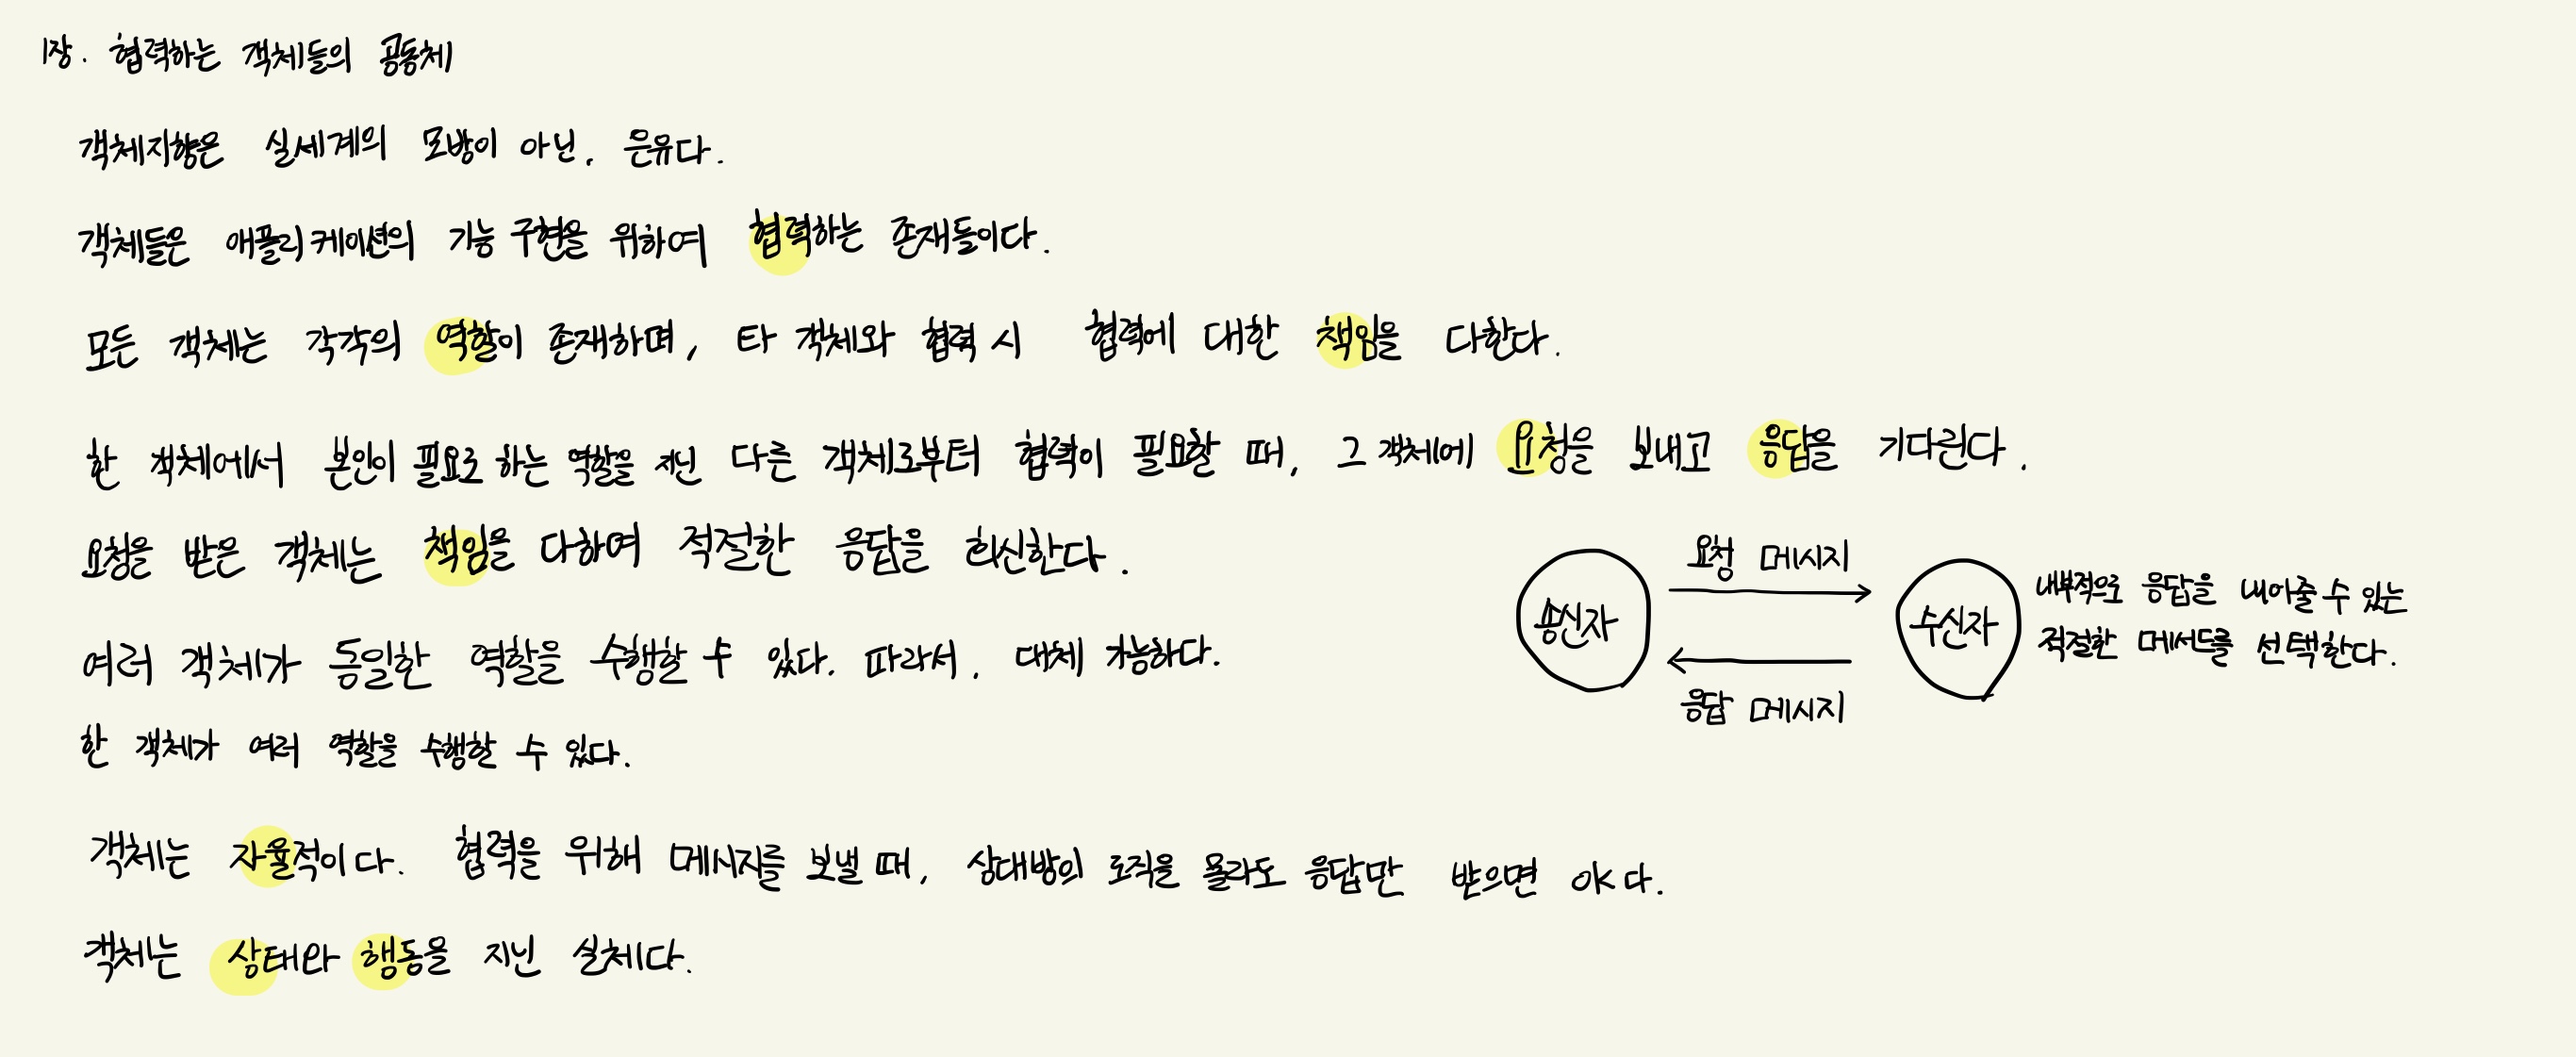 1장. 협력하는 객체들의 공동체
객체지향은 실세계의 모방이 아닌, 은유다.
객체들은 애플리케이션의 기능 구현을 위하여 협력하는 존재들이다.
모든 객체는 각각의 역할이 존재하며, 타 객체와 협력 시 협력에 대한 책임을 다한다.
한 객체에서 본인이 필요로 하는 역할을 지닌 다른 객체로부터 협력이 필요할 때, 그 객체에 요청을 보내고 응답을 기다린다.
요청을 받은 객체는 책임을 다하여 적절한 응답을 회신한다.
여러 객체가 동일한 역할을 수행할 수 있다. 따라서, 대체 가능하다.
한 객체가 여러 역할을 수행할 수 있다.
요청 메시지
송신자
수신자
응답 메시지
내부적으로 응답을 내어줄 수 있는
적절한 메서드를 선택한다.
객체는 자율적이다. 협력을 위해 메시지를 보낼 때, 상대방의 로직을 몰라도 응답만 받으면 OK다.
객체는 상태와 행동을 지닌 실체다.